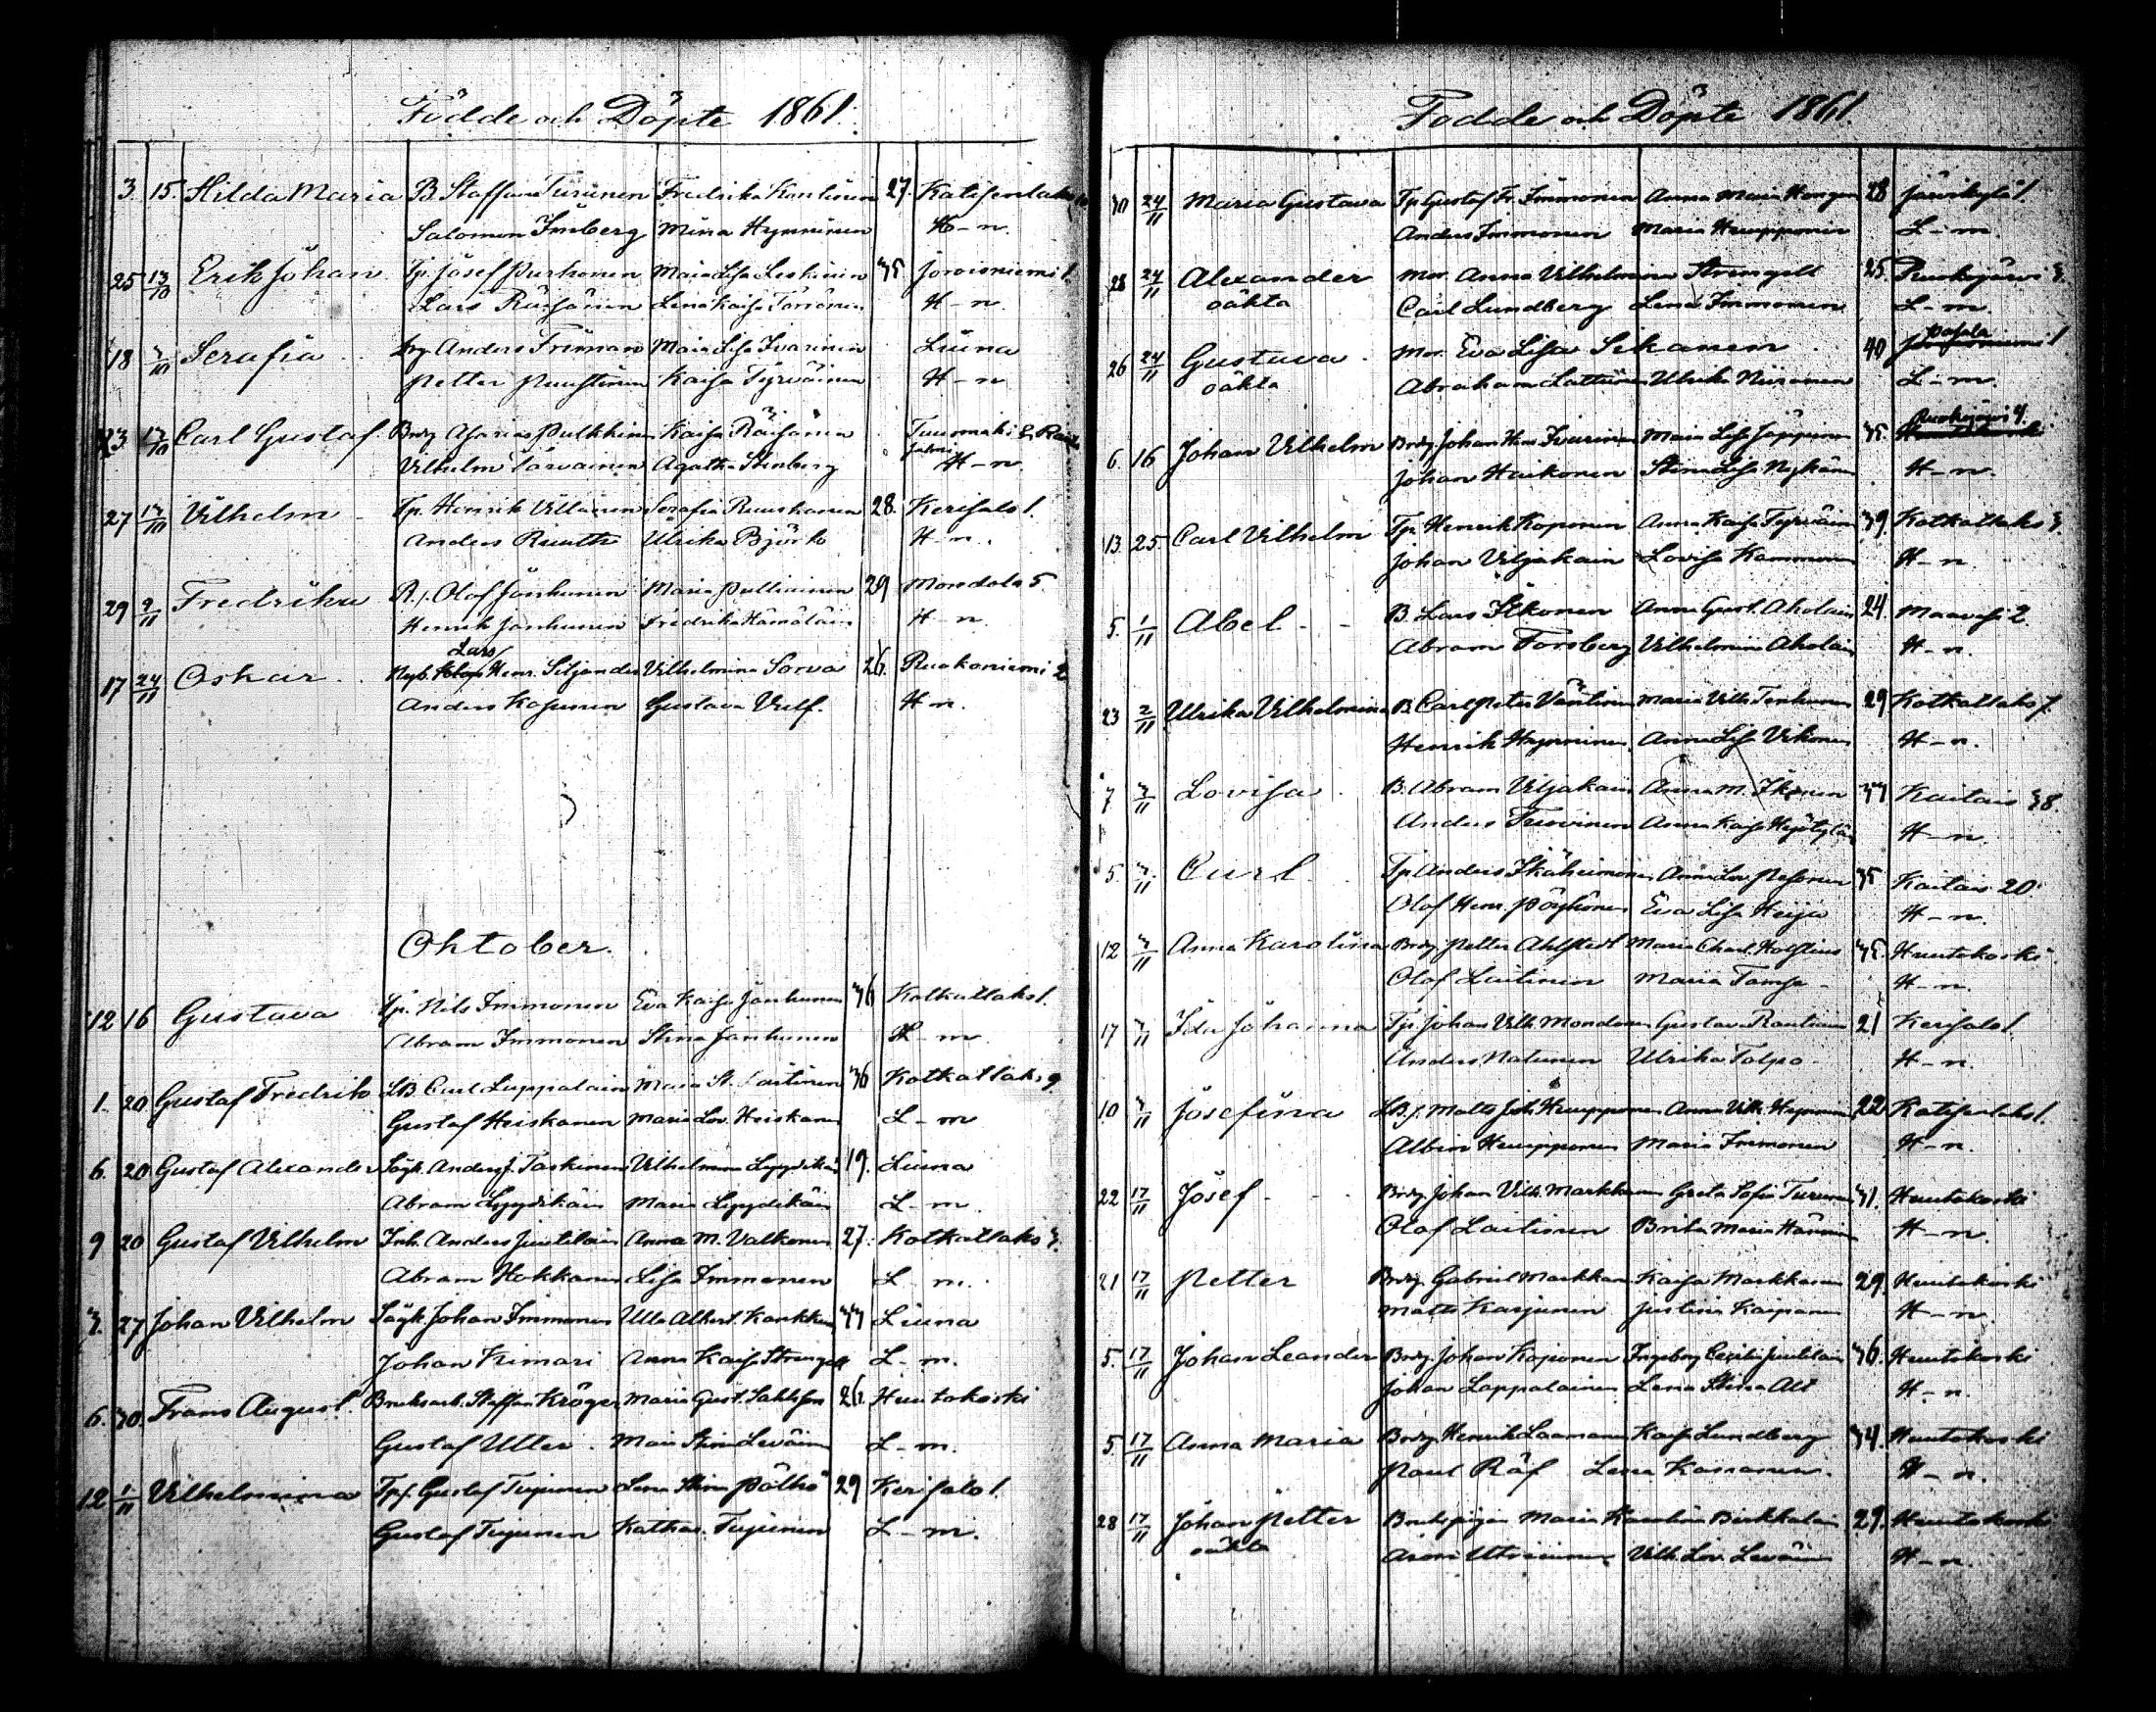 Födde och Döpte 1861.
3. 15. Hilda Maria B. Staffan Turunen Fredrika Kontinen 27. Katisenlaks
Salomon Imberg Mina Hynninen H-n.
25 13/10 Erik Johan Tp. Josef Purhonen Maia Lisa Leskinen 35 Joroisniemi 1.
Lars Räisänen Lena Kaisa Torrönen H-n.
18 3/10 Serafia Anders Friman Maia Lisa Ivarinen Liuna
Petter Puustinen Kaisa Tyrväinen H-n
23 13/10 Carl Gustaf Brukg Asarias Pulkkinen Kaisa Räisänen Tuuomäki
Vilhelm Tarvainen Agatha Stenberg H-n
27 13/10 Vilhelm Tp. Henrik Villanen Serafia Ruuskanen 28. Kerisalo 1.
Anders Ruuth Ulrika Björk H-n.
29 2/11 Fredrika Olof Janhunen Maria Pulliainen 29 Mondola 5.
Henrik Janhunen Fredrika Hämäläin H-n.
Lars
17 24/11 Oskar Nyb. Henr. Siljander Vilhelmina Sorva 26. Ruokoniemi 2
Anders Kosunen Gustava Vulf. H-n.
Oktober.
12 16 Gustava Tp. Nils Immonen Eva Kaisa Janhunen 36 Kotkatlaks 1.
Abram Immonen Stina Janhunen H-m
1. 20 Gustaf Fredrik LB. Carl Lappalain Maia St. Laitinen 36 Kotkatlaks 9.
Gustaf Heiskanen Maria Lov. Heiskanen L-m
6. 20 Gustaf Alexander Sågk. Anders J. Taskinen Vilhelmina Lyydikäin 19. Liuna
Abram Lyydikäin Maria Lyydikäin L-m.
9 20 Gustaf Vilhelm Inh. Anders Juutilain Anna M. Valkonen 27. Kotkatlaks 3.
Abram Hokkanen Lisa Immonen L-m.
3. 27 Johan Vilhelm Sågk. Johan Immonen Ulla Albert. Karhkken 33 Liuna
Johan Kimari Anna Kaisa Strengell L-m.
6. 30. Frans August Bruksarb. Staffan Kröger Maria Gust. Sahlsten 26. Huutokoski
Gustaf Utter Maia Stina Leväin L-m.
12 1/11 Vilhelmina Tp. Gustaf Tujunen Lena Stina Pölkö 29 Kerisalo 1.
Gustaf Tujunen Kathar. Tujunen L-m.
Födde och Döpte 1861.
30 24/11 Maria Gustava Tp Gustaf Fr. Immonen Anna Maria 28 Järvikylä 1.
Anders Immonen Maria Huupponen L-m.
28 24/11 Alexander Mor. Anna Vilhelmina Strengell 25. 3.
oäkta Carl Lundberg Lena Immonen L-m.
Pasala
26 24/11 Gustava Mor. Eva Lisa Sikanen 40 1
oäkta Abraham Lattunen Ulrika Niiranen L-m.
6. 16 Johan Vilhelm Brukg. Johan Henr. Ivarinen Maia Lisa Jäppinen 35. 4.
Johan Haikonen Stina Lisa Nykänen H-n.
13. 25 Carl Vilhelm Tp. Henrik Koponen Anna Kaisa Tyrväin 39. Kotkatlaks 3.
Johan Viljakain Lovisa Kammonen H-n
5. 1/11 Abel B. Lars Ikonen Anna Gust. Aholain 24. Maavesi 2.
Abram Forsberg Vilhelmina Aholain H-n.
23 2/11 Ulrika Vilhelmina B. Carl Peter Väntinen Maria Vilh. Tenhunen 29 Kotkatlaks 7.
Henrik Hynninen Anna Lisa Vikonen H-n.
7 3/11 Lovisa B. Abram Viljakain Anna M. Ikonen 33 Kaitais 38.
Anders Turvinen Anna Kaisa H-n.
5. 3/11 Carl Tp Anders Ikäheimonen Anna Lov. Pesonen 35 Kaitais 20.
Olof Henr. Pöyhönen Eva Lisa Heiju H-n.
12 3/11 Anna Karolina Brukg. Petter Ahlstedt Maria Charl. Holstius 35. Huutokoski.
Olof Laitinen Maria Tamsa H-n.
17 3/11 Ida Johanna Tp. Johan Vilh. Mondonen Gustava Rautiain 21 Kerisalo 1.
Anders Natunen Ulrika Tolpo H-n.
10 3/11 Josefina LB. Matts Joh. Huupponen Anna Vilh. 22 Katisenlaks 1.
Albin Huupponen Maria Immonen H-n.
22 17/11 Josef Brukg. Johan Vilh. Markkanen Greta Sofia Turunen 31. Huutokoski
Olof Laitinen Brita Maria Hänninen H-n.
21 17/11 Petter Brukg. Gabriel Markkanen Kaisa Markkanen 29. Huutokoski
Matts Karjunen Justina Kaipanen H-n.
5. 17/11 Johan Leander Brukg. Johan Koponen Ingeborg Cecilia Juutilain 36. Huutokoski
Johan Lappalainen Lena Stina Alt H-n.
5 17/11 Anna Maria Brukg. Henrik Laamanen Kaisa Lundberg 34. Huutokoski
Paul Räf Lena Kananen. H-n.
28 17/11 Johan Petter Brukspigan Maria Karolina Birkkalain 29. Huutokoski
oäkta Aron Utriainen Vilh. Lov. Leväin H-n.